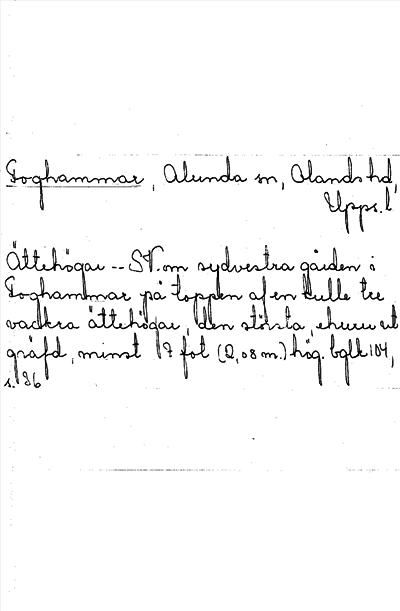 Foghammar, Alunda sn, Olands hd,
Upps. l
Ättehögar -- SV. om sydvestra gården i
Foghammar på toppen af en kulle tre
vackra ättehögar, den största, ehuru ut
gräfd, minst 7 fot (2,08 m.) hög. bglk 104,
s. 36